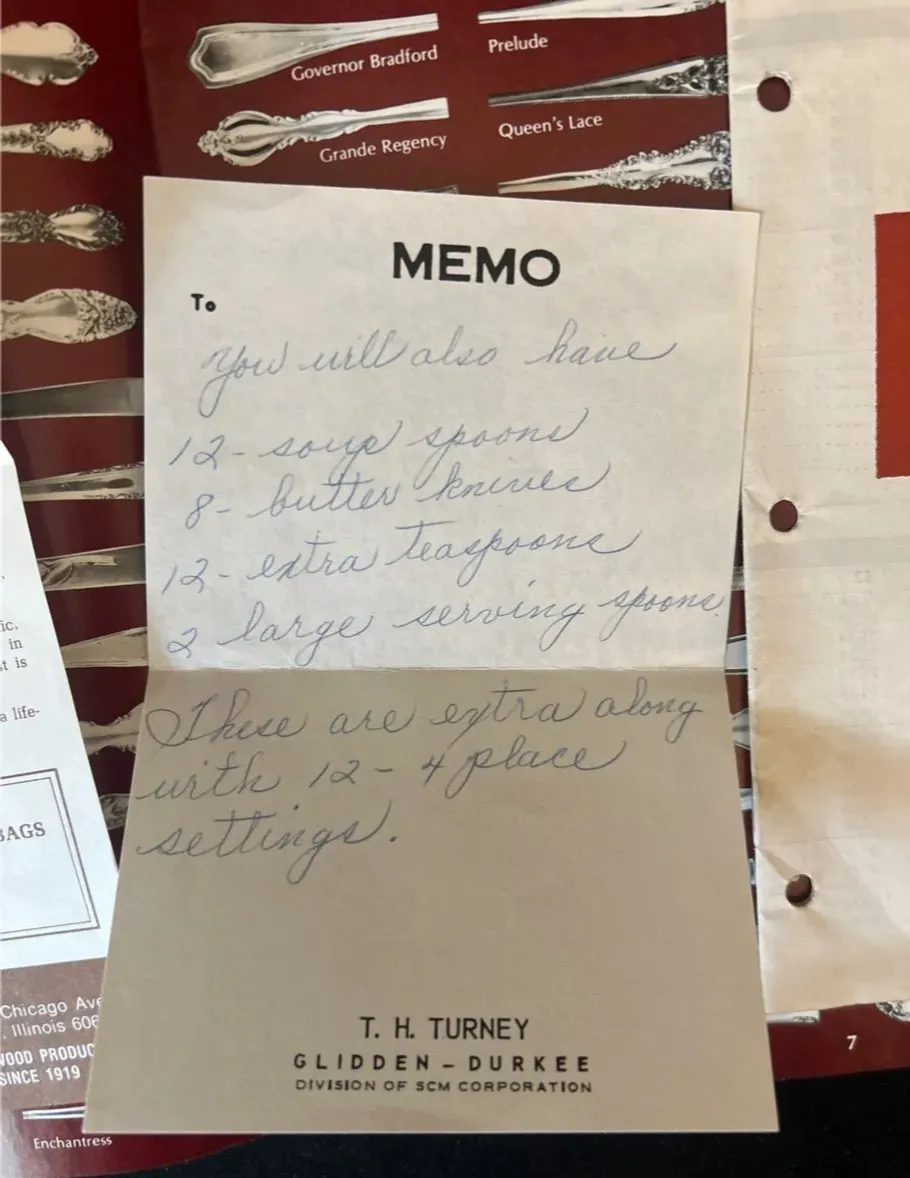 Governor Bradford
Prelude
Grande Regency
Queen's Lace
MEMO
To
You will also have
12 - soup spoons
8 - butter knives
12 - extra teaspoons
2 large serving spoons
These are extra along
with 12 - 4 place
settings.
T. H. TURNEY
GLIDDEN - DURKEE
DIVISION OF SCM CORPORATION
ic.
in
st is
a life-
BAGS
Chicago Ave
, Illinois 606
WOOD PRODUC
SINCE 1919
Enchantress
7